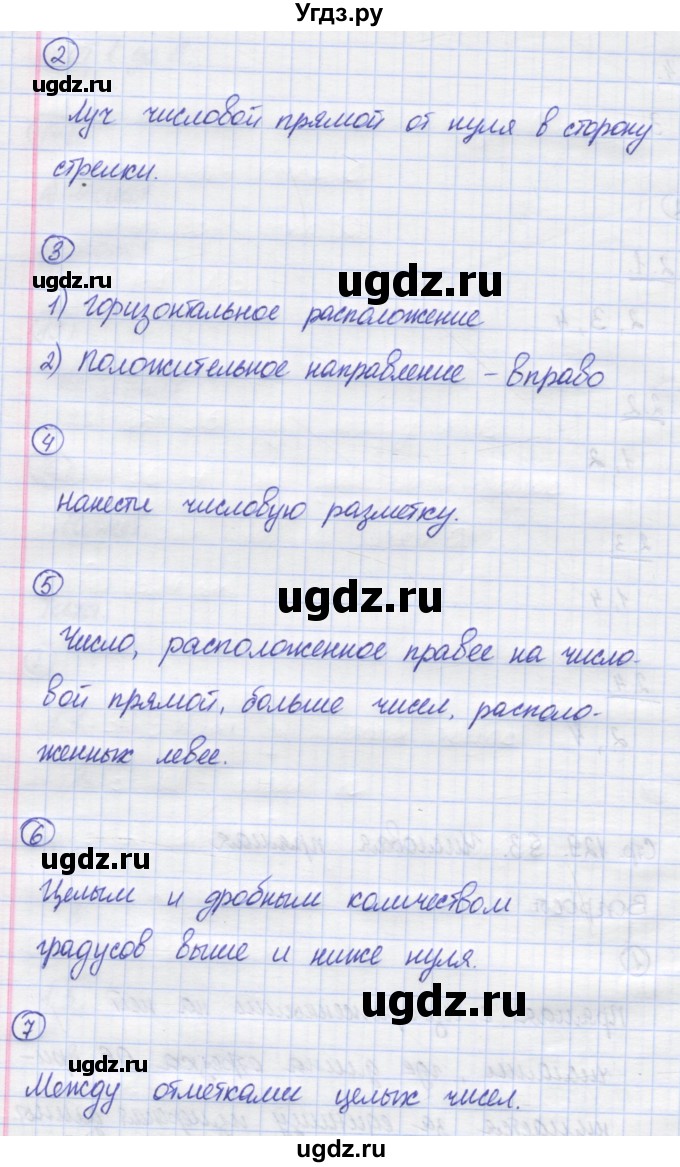 Угдз.ру
2
ugdz.ru
Луч числовой прямой от нуля в сторону
стрелки.
3
ugdz.ru
ugdz.ru
1) Горизонтальное расположение
2) Положительное направление - вправо
4
Нанести числовую разметку.
5
ugdz.ru
Число, расположенное правее на число-
вой прямой, больше чисел, располо-
женных левее.
6
ugdz.ru
Целым и дробным количеством
градусов выше и ниже нуля.
ugdz.ru
7
ugdz.ru
Между отметками целых чисел.
ugdz.ru